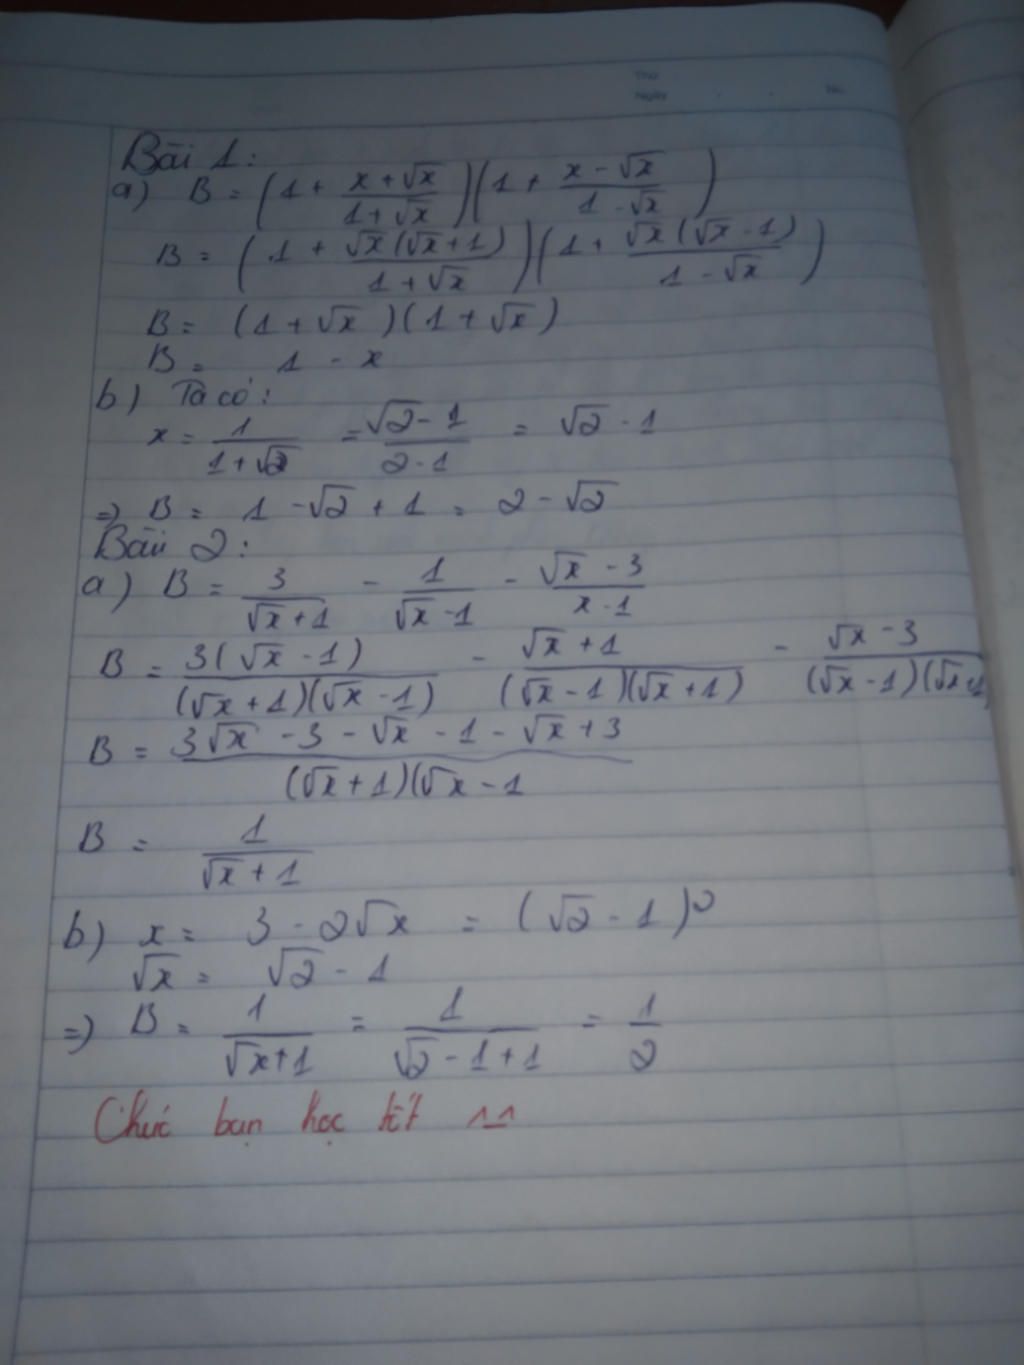 Thứ
Ngày
No.
Bài 1:
a) B = (1 + (x + √x)/(1 + √x))(1 + (x - √x)/(1 - √x))
B = (1 + √x(√x + 1)/(1 + √x))(1 + √x(√x - 1)/(1 - √x))
B = (1 + √x)(1 + √x)
B = 1 - x
b) Ta có:
x = 1/(1 + √2) = (√2 - 1)/(2 - 1) = √2 - 1
=> B = 1 - √2 + 1 = 2 - √2
Bài 2:
a) B = 3/(√x + 1) - 1/(√x - 1) - (√x - 3)/(x - 1)
B = 3(√x - 1)/((√x + 1)(√x - 1)) - (√x + 1)/((√x - 1)(√x + 1)) - (√x - 3)/((√x - 1)(√x + 1)
B = (3√x - 3 - √x - 1 - √x + 3)/((√x + 1)(√x - 1
B = 1/(√x + 1)
b) x = 3 - 2√x = (√2 - 1)²
√x = √2 - 1
=> B = 1/(√x + 1) = 1/(√2 - 1 + 1) = 1/2
Chúc bạn học tốt ^_^